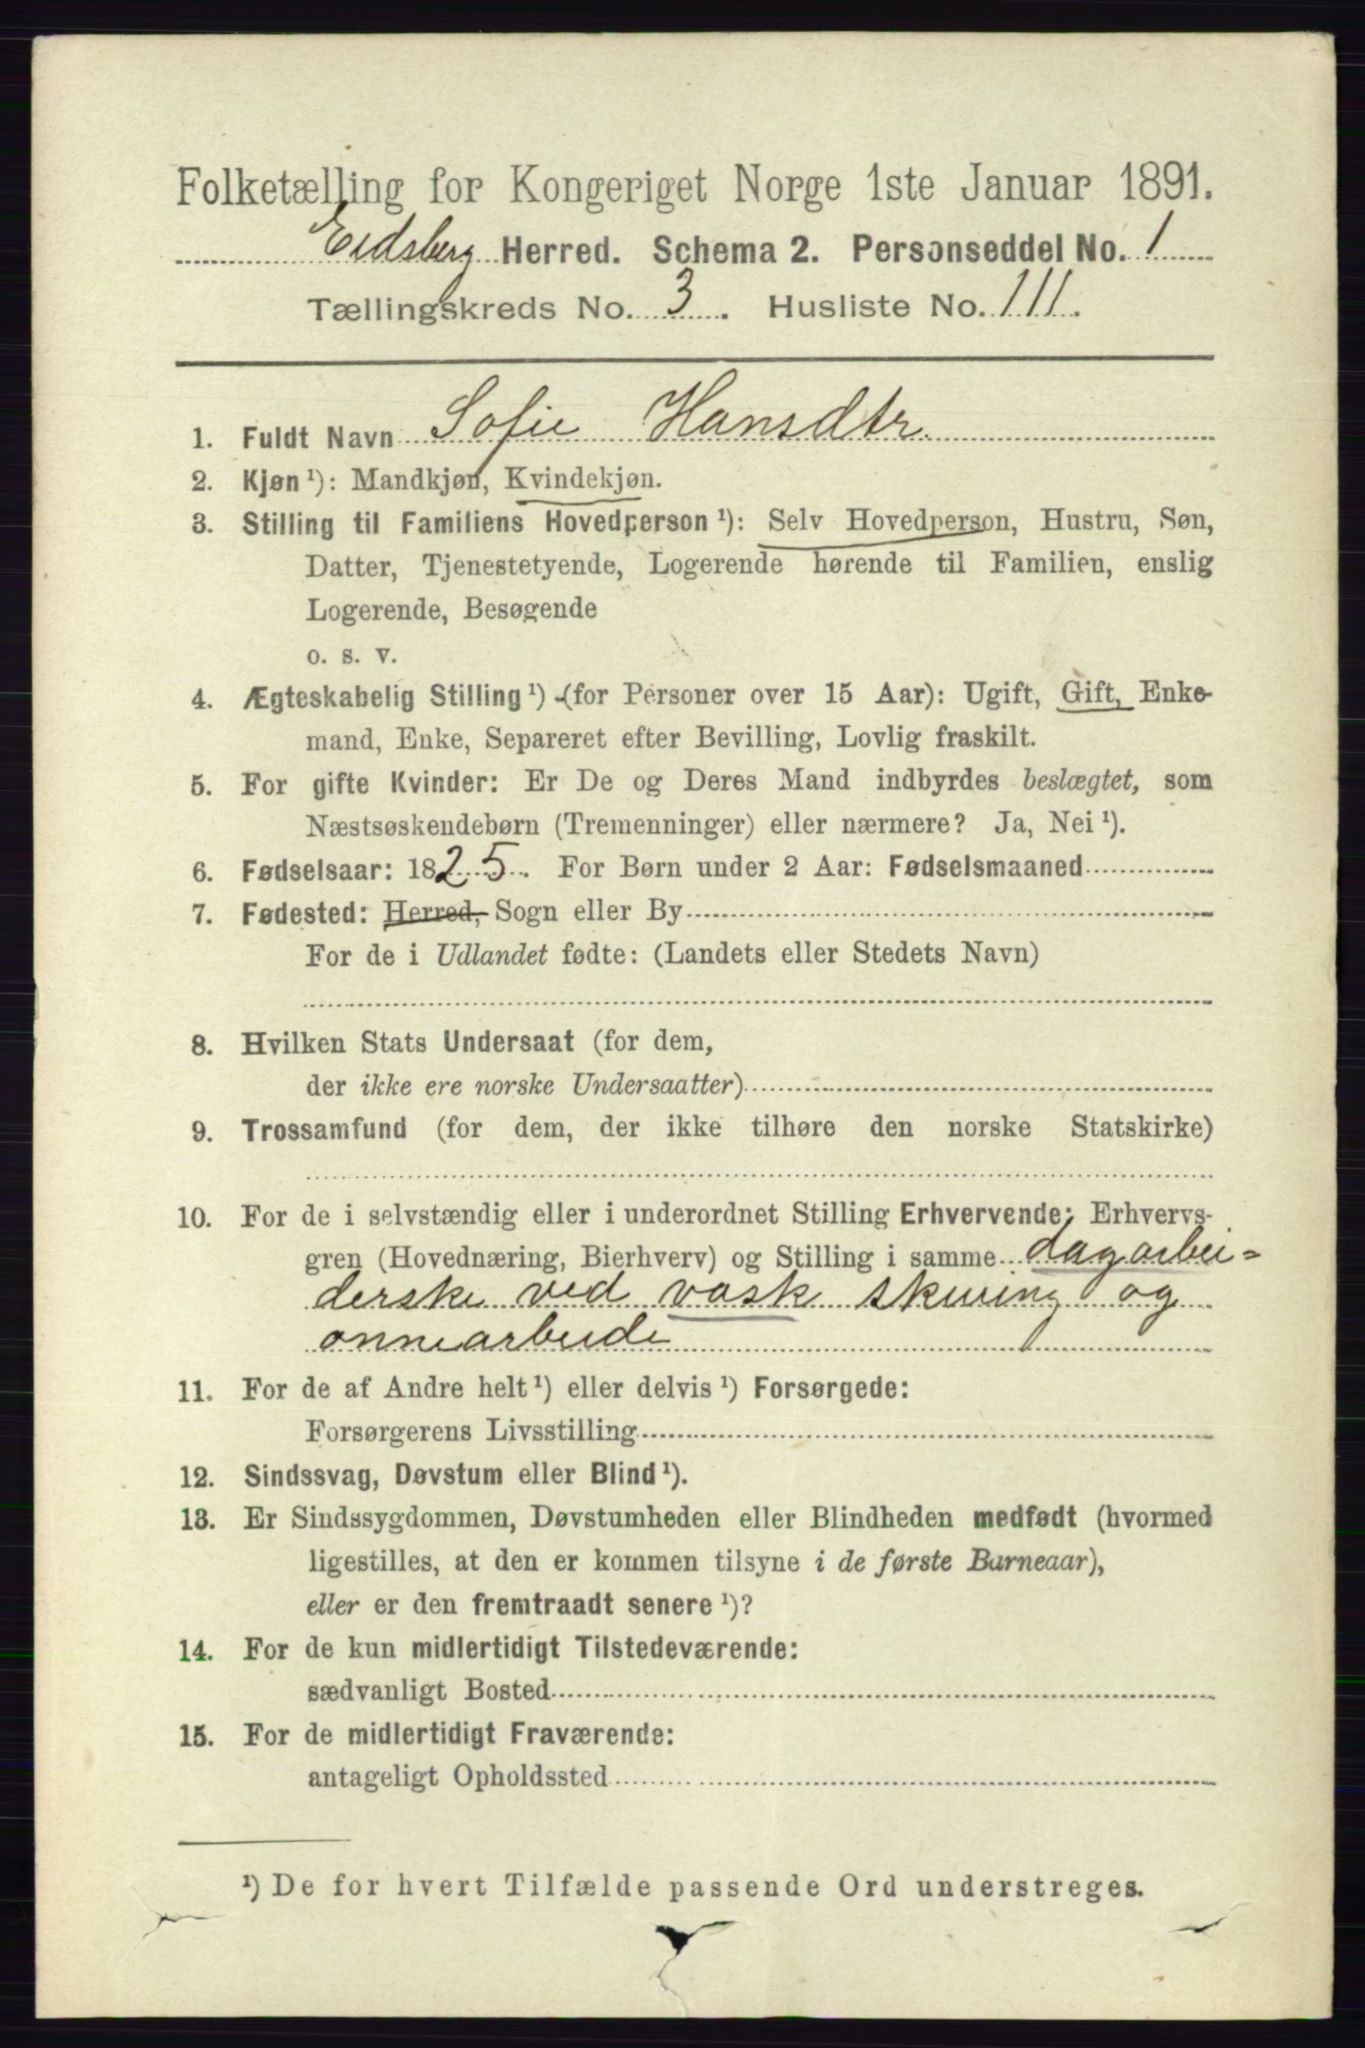 Folketælling for Kongeriget Norge 1ste Januar 1891.
Eidsberg Herred. Schema 2. Personseddel No. 1
Tællingskreds No. 3. Husliste No. 111.
1. Fuldt Navn Sofie Hansdtr.
2. Kjøn ¹): Mandkjøn, Kvindekjøn.
3. Stilling til Familiens Hovedperson ¹): Selv Hovedperson, Hustru, Søn,
Datter, Tjenestetyende, Logerende hørende til Familien, enslig
Logerende, Besøgende
o. s. v.
4. Ægteskabelig Stilling ¹) (for Personer over 15 Aar): Ugift, Gift, Enke-
mand, Enke, Separeret efter Bevilling, Lovlig fraskilt.
5. For gifte Kvinder: Er De og Deres Mand indbyrdes beslægtet, som
Næstsøskendebørn (Tremenninger) eller nærmere? Ja, Nei ¹).
6. Fødselsaar: 1825. For Børn under 2 Aar: Fødselsmaaned
7. Fødested: Herred, Sogn eller By
For de i Udlandet fødte: (Landets eller Stedets Navn)
8. Hvilken Stats Undersaat (for dem,
der ikke ere norske Undersaatter)
9. Trossamfund (for dem, der ikke tilhøre den norske Statskirke)
10. For de i selvstændig eller i underordnet Stilling Erhvervende: Erhvervs-
gren (Hovednæring, Bierhverv) og Stilling i samme dagarbei=
derske ved vask skuring og
onnearbeide
11. For de af Andre helt ¹) eller delvis ¹) Forsørgede:
Forsørgerens Livsstilling
12. Sindssvag, Døvstum eller Blind ¹).
13. Er Sindssygdommen, Døvstumheden eller Blindheden medfødt (hvormed
ligestilles, at den er kommen tilsyne i de første Barneaar),
eller er den fremtraadt senere ¹)?
14. For de kun midlertidigt Tilstedeværende:
sædvanligt Bosted
15. For de midlertidigt Fraværende:
antageligt Opholdssted
¹) De for hvert Tilfælde passende Ord understreges.